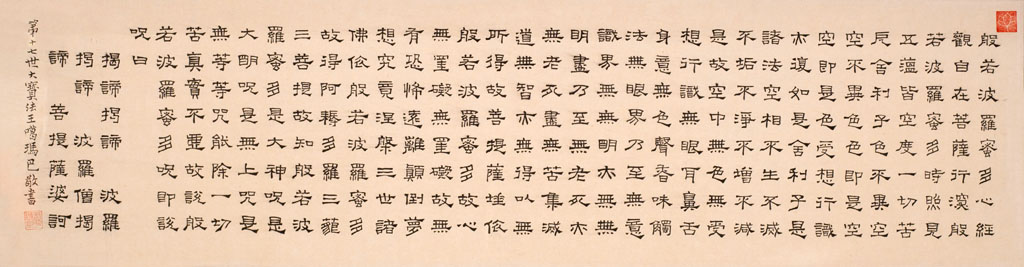 般若波羅蜜多心經
觀自在菩薩行深般
若波羅蜜多時照見
五蘊皆空度一切苦
厄舍利子色不異空
空不異色色即是空
空即是色受想行識
亦復如是舍利子是
諸法空相不生不滅
不垢不淨不增不減
是故空中無色無受
想行識無眼耳鼻舌
身意無色聲香味觸
法無眼界乃至無意
識界無無明亦無無
明盡乃至無老死亦
無老死盡無苦集滅
道無智亦無得以無
所得故菩提薩埵依
般若波羅蜜多故心
無罣礙無罣礙故無
有恐怖遠離顛倒夢
想究竟涅槃三世諸
佛依般若波羅蜜多
故得阿耨多羅三藐
三菩提故知般若波
羅蜜多是大神呪是
大明呪是無上呪是
無等等呪能除一切
苦真實不虛故說般
若波羅蜜多呪即說
呪曰
揭諦揭諦 波羅
揭諦 波羅僧揭
諦 菩提薩婆訶
第十七世大寶法王噶瑪巴敬書